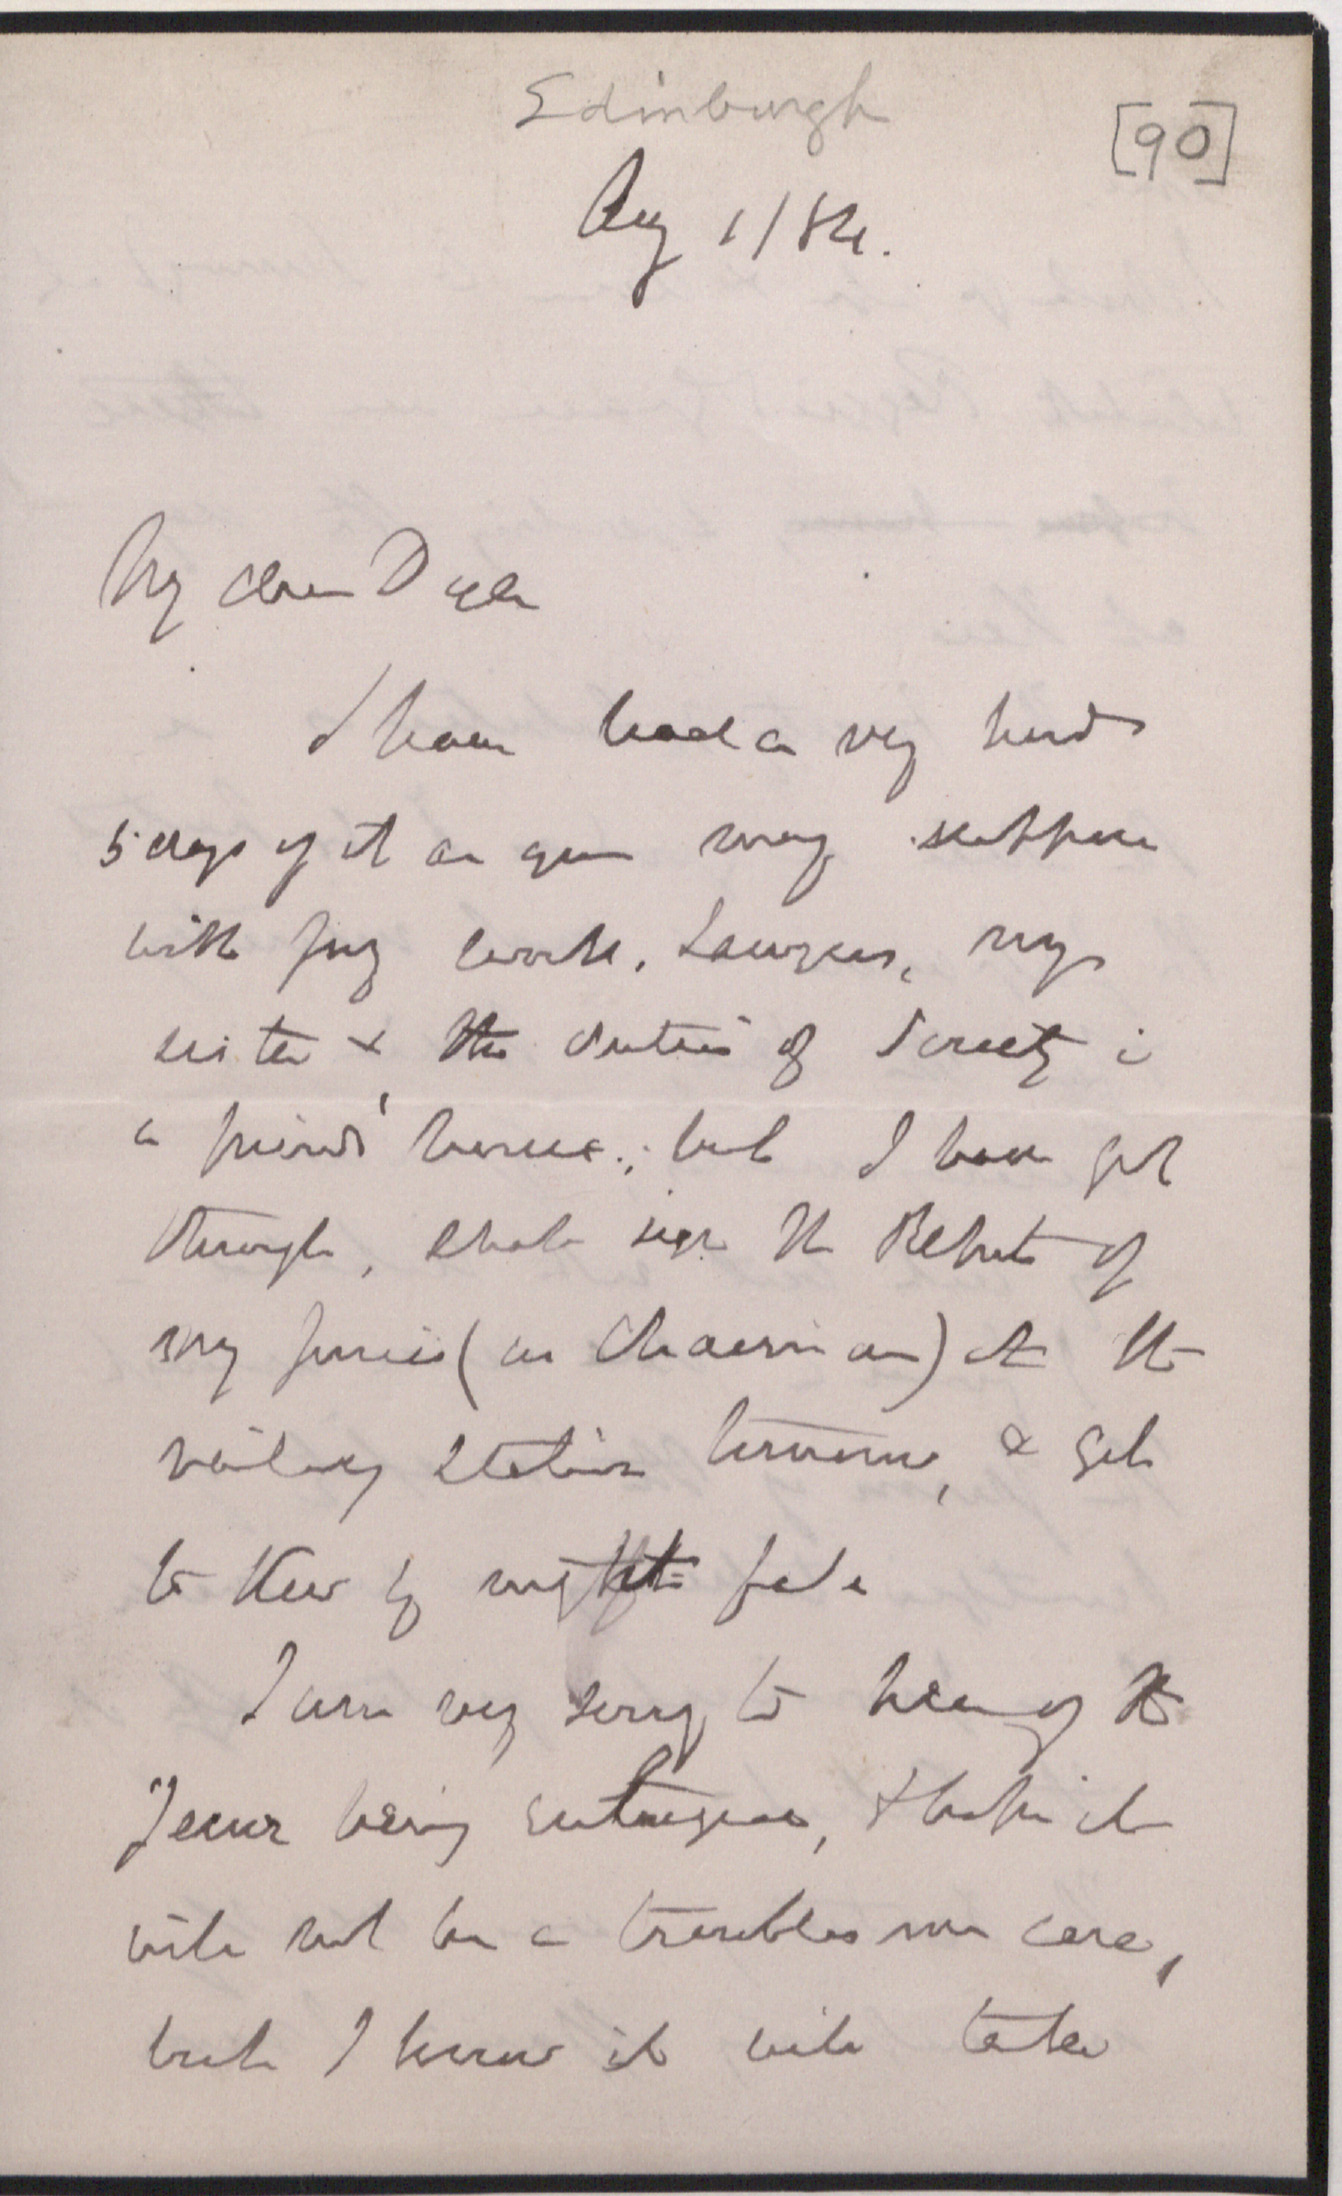 Edinburgh
[90]
Aug 1/84.
My dear Dyer
I have had a very hard
5 days of it as you may suppose
with Jury work, Lawyers, my
sister & the duties of Society in
a friends' house; but I have got
through, shall sign the Report of
my Juries (as Chairman) at the
railway station tomorrow, & get
to Kew by night
I am very sorry to hear of
being & hope it
will not be a troublesome case,
but I know it will take